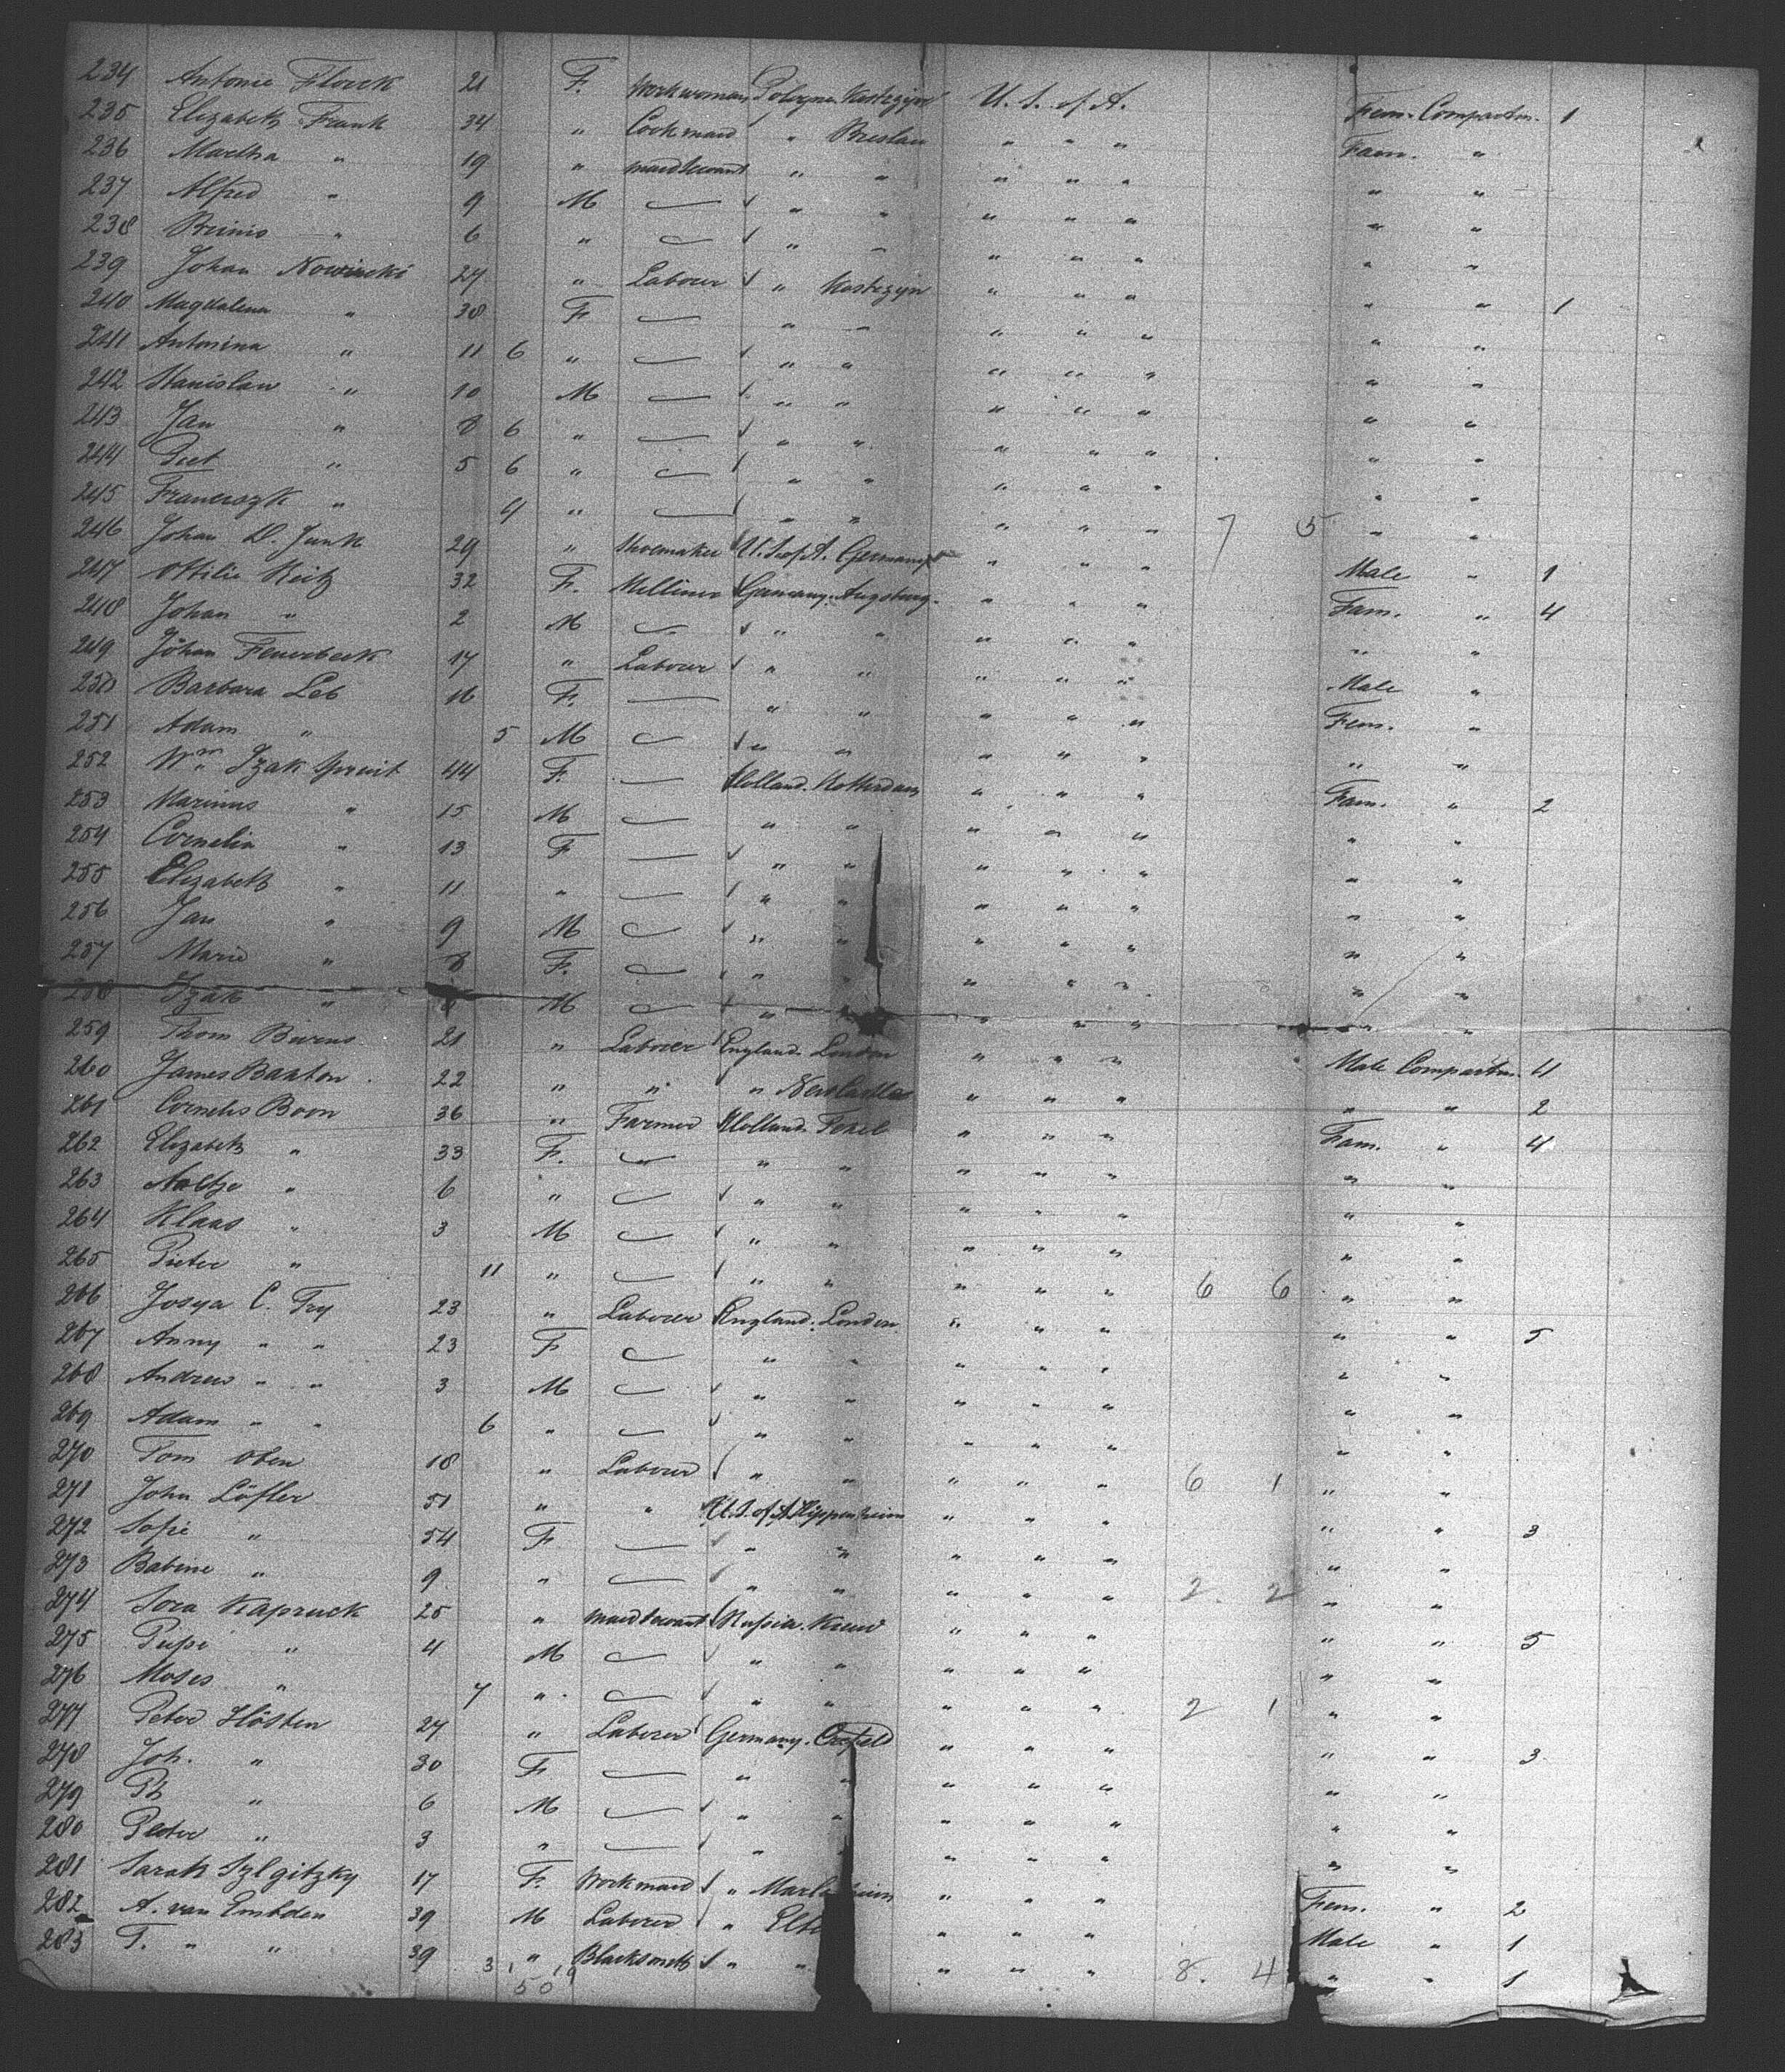 234 Antonie Florek 21 F. Workwoman Pologne Kostrzyn U. S. of A. Fem. Compartm. 1
235 Elizabeth Frank 34 " Cookmaid " Breslau " " " Fam. "
236 Martha " 19 " maidservant " " " " " " "
237 Alfred " 9 M " " " " " " "
238 " 6 " " " " " " " "
239 Johan Nowinski 27 " Labourer " Kostrzyn " " " " " 1
240 Magdalena " 38 F. " " " " " " "
241 Antonina " 11 6 " " " " " " " "
242 Stanislaw " 10 M " " " " " " "
243 Jan " 8 6 " " " " " " " "
244 Piet " 5 6 " " " " " " " "
245 " 4 " " " " " " 7 5 " "
246 Johan D. Junk 29 " Shoemaker U. S. of A. Germany " " " Male " 1
247 Ottilie Reitz 32 F. Germany. Augsburg. " " " Fam. " 4
248 Johan " 2 M " " " " " " "
249 Johan Feuerbeck 17 " Labourer " " " " " Male "
250 Barbara Leb 16 F. " " " " " Fem. "
251 Adam " 5 M " " " " " " "
252 Wm. Izak Spruit 44 F. Holland. Rotterdam " " " Fam. " 2
253 Marinus " 15 M " " " " " " "
254 Cornelia " 13 F " " " " " " "
255 Elizabeth " 11 " " " " " " " "
256 Jan " 9 M " " " " " " "
257 Marie " 8 F. " " " " " " "
258 Izak " M " " " " " "
259 Thom Burns 21 " Labourer England. London " " " Male Compartm. 4
260 James Baxton. 22 " " " Newcastle " " " " " 2
261 Cornelis Boon 36 " Farmer Holland. Texel " " " Fam. " 4
262 Elizabeth " 33 F. " " " " " " "
263 Aaltje " 6 " " " " " " " "
264 Klaas " 3 M " " " " " " "
265 Pieter " 11 " " " " " " 6 6 " "
266 Josya C. Fry 23 " Labourer England. London " " " " " 5
267 Anny " " 23 F " " " " " " "
268 Andrew " " 3 M " " " " " " "
269 Adam " " 6 " " " " " " " "
270 Tom Oben 18 " Labourer " " " " " 6 1 " "
271 John Löfler 51 " " U. S. of A. Hippenheim " " " " " 3
272 Sofie " 54 F " " " " " " "
273 Babine " 9 " " " " " " 2. 2 " "
274 Sora Kapruck 25 " maidservant Russia. " " " " " 5
275 " 4 M " " " " " " "
276 Moses " 7 " " " " " " 2 1 " "
277 Peter Hösten 27 " Labourer Germany. Crefeld " " " " " 3
278 Joh. " 30 F " " " " " " "
279 " 6 M " " " " " " "
280 Peter " 3 " " " " " " "
281 Sarah Szlgitzky 17 F. Workmaid " " " " Fem. " 2
282 A. van Embden 39 M Labourer " Elbe " " " Male " 1
283 T. " " 39 " Blacksmith " " " " " 8. 4 " " 1
50